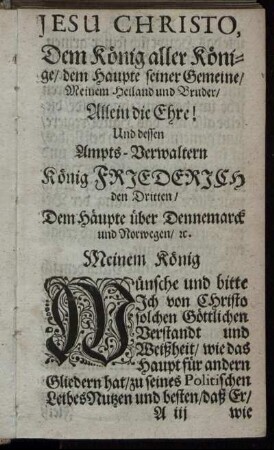 JESU CHRISTO,
Dem König aller Köni-
ge/ dem Häupte seiner Gemeine/
Meinem Heiland und Bruder/
Allein die Ehre!
Und dessen
Ampts-Verwaltern
König FRIEDERICH
den Dritten/
Dem Häupte über Dennemarck
und Norwegen/ ꝛc.
Meinem König
Wünsche und bitte
Ich von CHristo
solchen Göttlichen
Verstandt und
Weißheit/ wie das
Haupt für andern
Gliedern hat/ zu seines Politischen
Leibes Nutzen und besten/ daß Er/
A iij wie